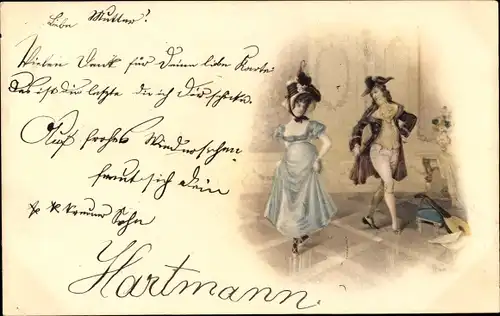 Liebe Mutter!
Vielen Dank für Deine liebe Karte.
Das ist die letzte die ich Dir schicke.
Auf frohes Wiedersehen
freut sich Dein
treuer Sohn
Hartmann.